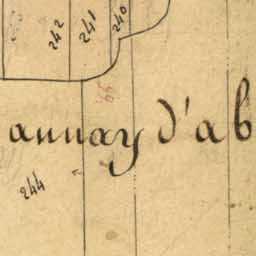 242
241
240
annay d'ab
244